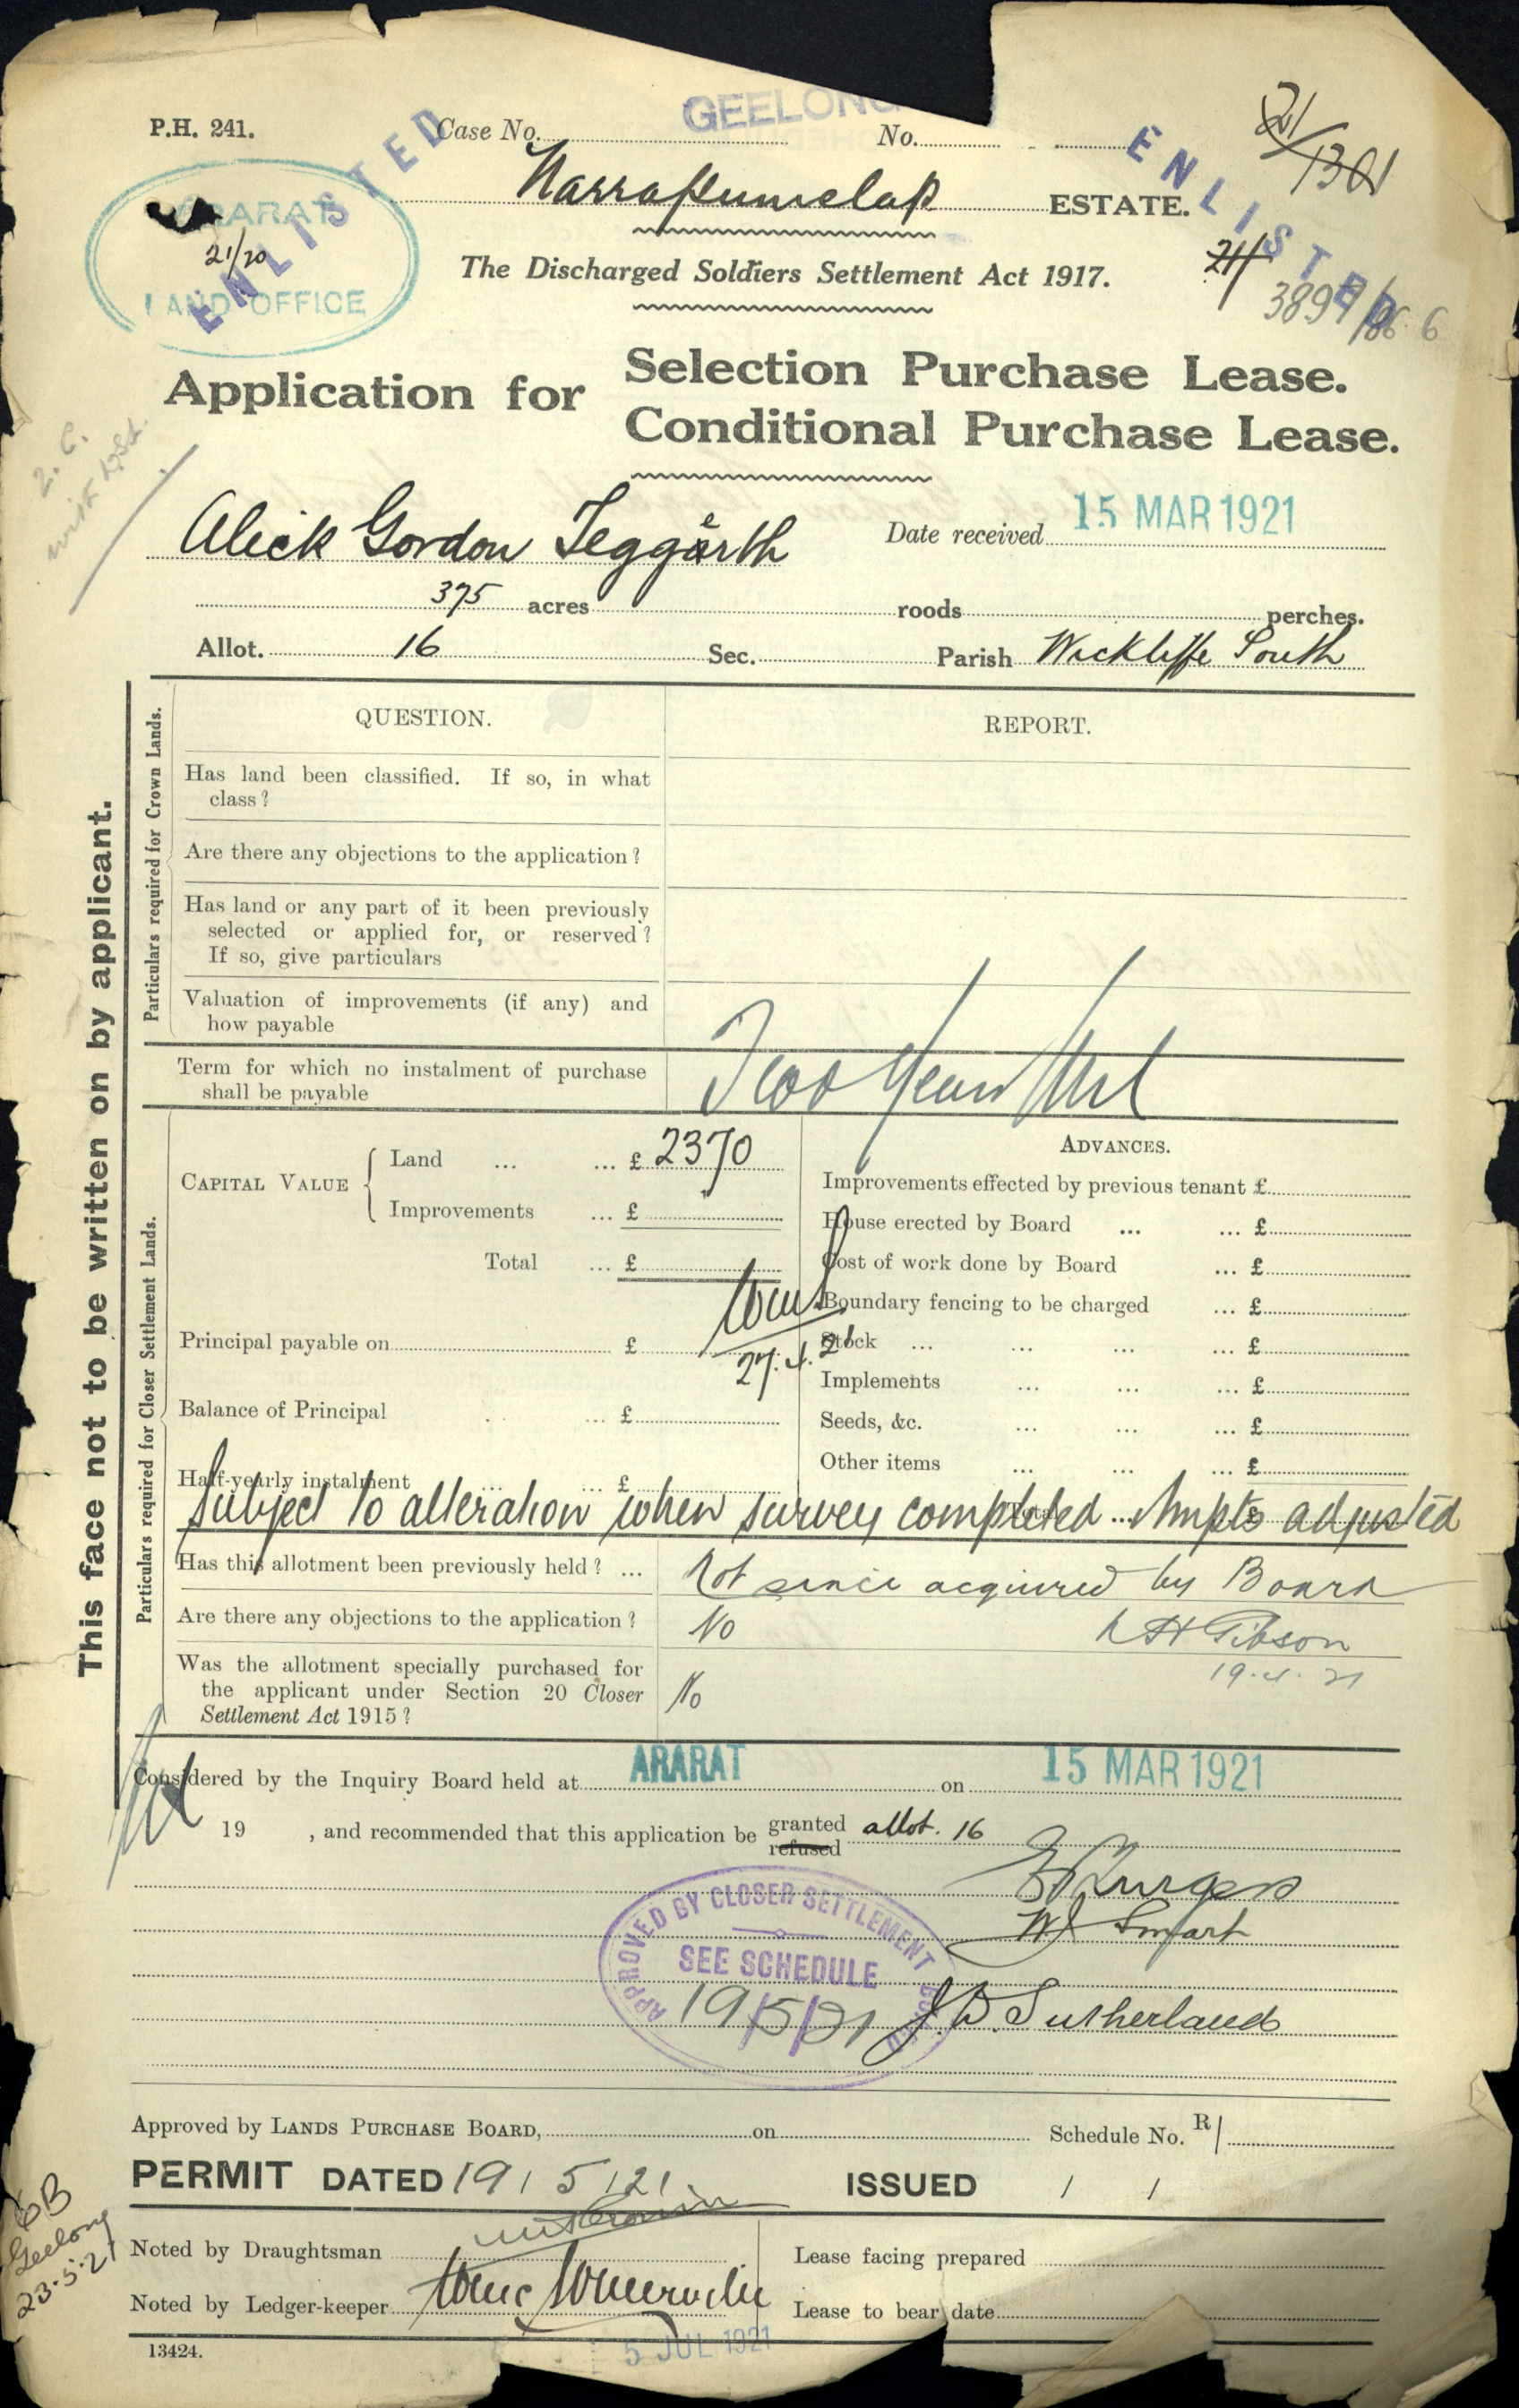 GEELONG
P.H. 241.
Case No.
No.
ENLISTED
ENLISTED
21/1301
Narrapumelap ESTATE.
ARARAT
21/20
LAND OFFICE
The Discharged Soldiers Settlement Act 1917.
21/
3894/86.6
Application for
Selection Purchase Lease.
Conditional Purchase Lease.
Alick Gordon Teggerth
Date received 15 MAR 1921
375 acres roods perches.
Allot. 16 Sec. Parish Wickliffe South
This face not to be written on by applicant.
Particulars required for Crown Lands.
QUESTION.
REPORT.
Has land been classified. If so, in what
class?
Are there any objections to the application?
Has land or any part of it been previously
selected or applied for, or reserved?
If so, give particulars
Valuation of improvements (if any) and
how payable
Term for which no instalment of purchase
shall be payable
Two Years
Particulars required for Closer Settlement Lands.
CAPITAL VALUE
Land ... ... £ 2370
Improvements ... £
Total ... £
27.4.21
Principal payable on £
Balance of Principal ... £
Half-yearly instalment ... £
ADVANCES.
Improvements effected by previous tenant £
House erected by Board ... ... £
Cost of work done by Board ... £
Boundary fencing to be charged ... £
Stock ... ... ... ... £
Implements ... ... ... £
Seeds, &c. ... ... ... £
Other items ... ... ... £
Subject to alteration when survey completed & Impts adjusted
Has this allotment been previously held? ...
Not since acquired by Board
Are there any objections to the application?
No
Gibson
19.4.21
Was the allotment specially purchased for
the applicant under Section 20 Closer
Settlement Act 1915?
No
Considered by the Inquiry Board held at ARARAT on 15 MAR 1921
19 , and recommended that this application be granted allot. 16
refused
W J Smart
APPROVED BY CLOSER SETTLEMENT BOARD
SEE SCHEDULE
19/5/21
J.D. Sutherland
Approved by LANDS PURCHASE BOARD, on Schedule No. R/
PERMIT DATED 19/5/21. ISSUED / /
Geelong
23.5.21
Noted by Draughtsman
Lease facing prepared
Noted by Ledger-keeper
Lease to bear date
13424.
5 JUL 1921